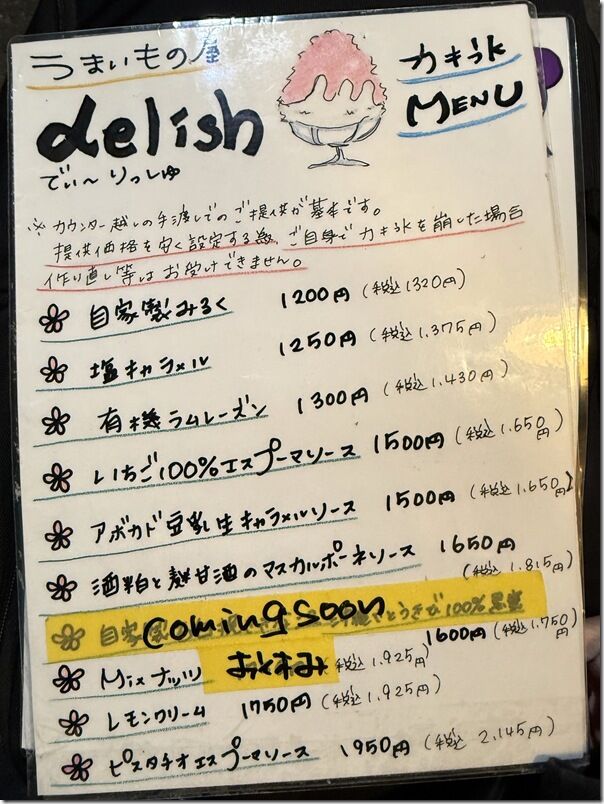 うまいもの屋
カキ氷
MENU
delish
でぃ〜りっしゅ
※カウンター越しの手渡しでのご提供が基本です。
提供価格を安く設定する為、ご自身でカキ氷を崩した場合
作り直し等はお受けできません。
自家製みるく 1200円 (税込1320円)
塩キャラメル 1250円 (税込1.375円)
有機ラムレーズン 1300円 (税込1.430円)
いちご100%エスプーマソース 1500円 (税込1.650円)
アボカド豆乳生キャラメルソース 1500円 (税込1.650円)
酒粕と麹甘酒のマスカルポーネソース 1650円 (税込1.815円)
Coming soon
自家製 とうきび100%黒蜜 1600円 (税込1.750円)
Mixナッツ おやすみ 税込1.925円)
レモンクリーム 1750円 (税込1.925円)
ピスタチオエスプーマソース 1950円 (税込2.145円)